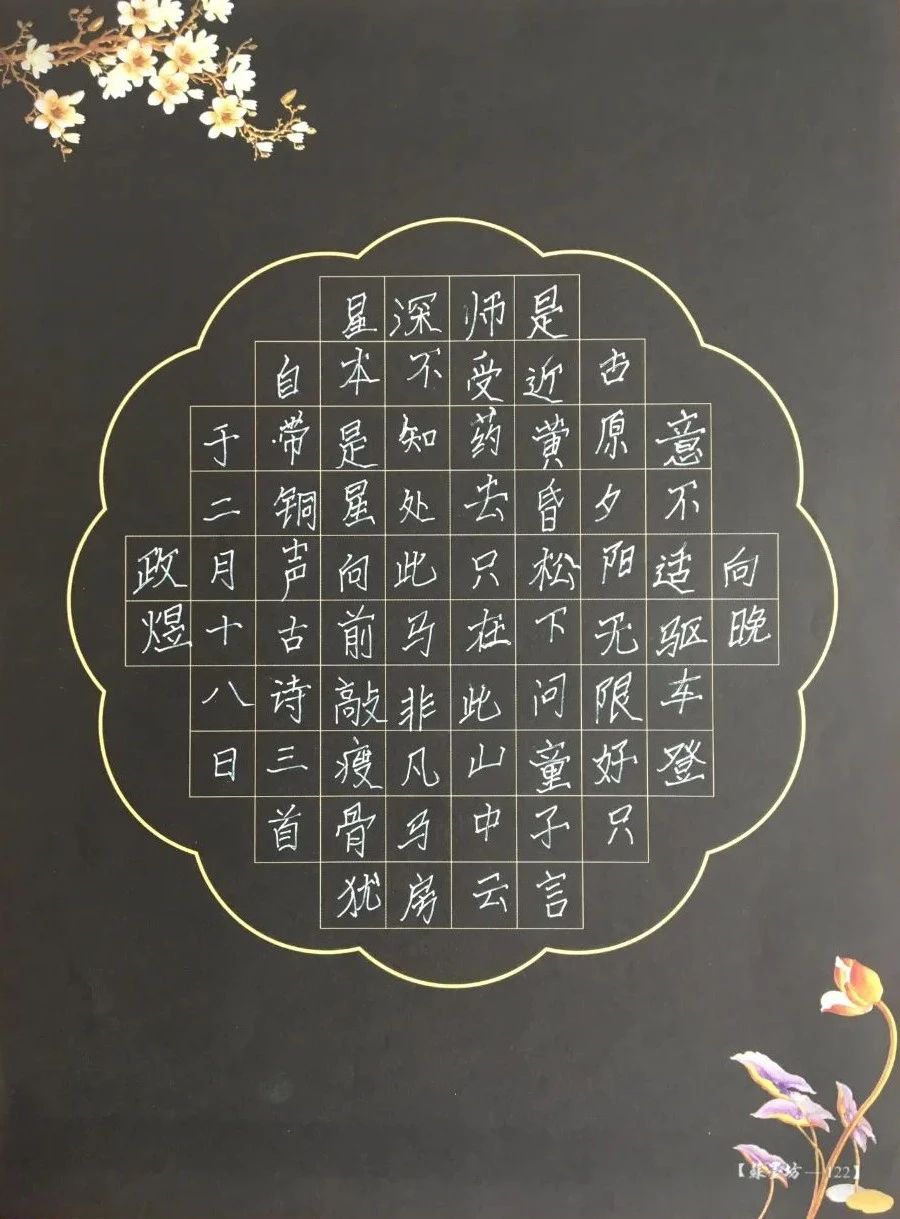 向晚
意不适驱车登
古原夕阳无限好只
是近黄昏松下问童子言
师受药去只在此山中云
深不知处此马非凡马房
星本是星向前敲瘦骨犹
自带铜声古诗三首
于二月十八日
政煜
122